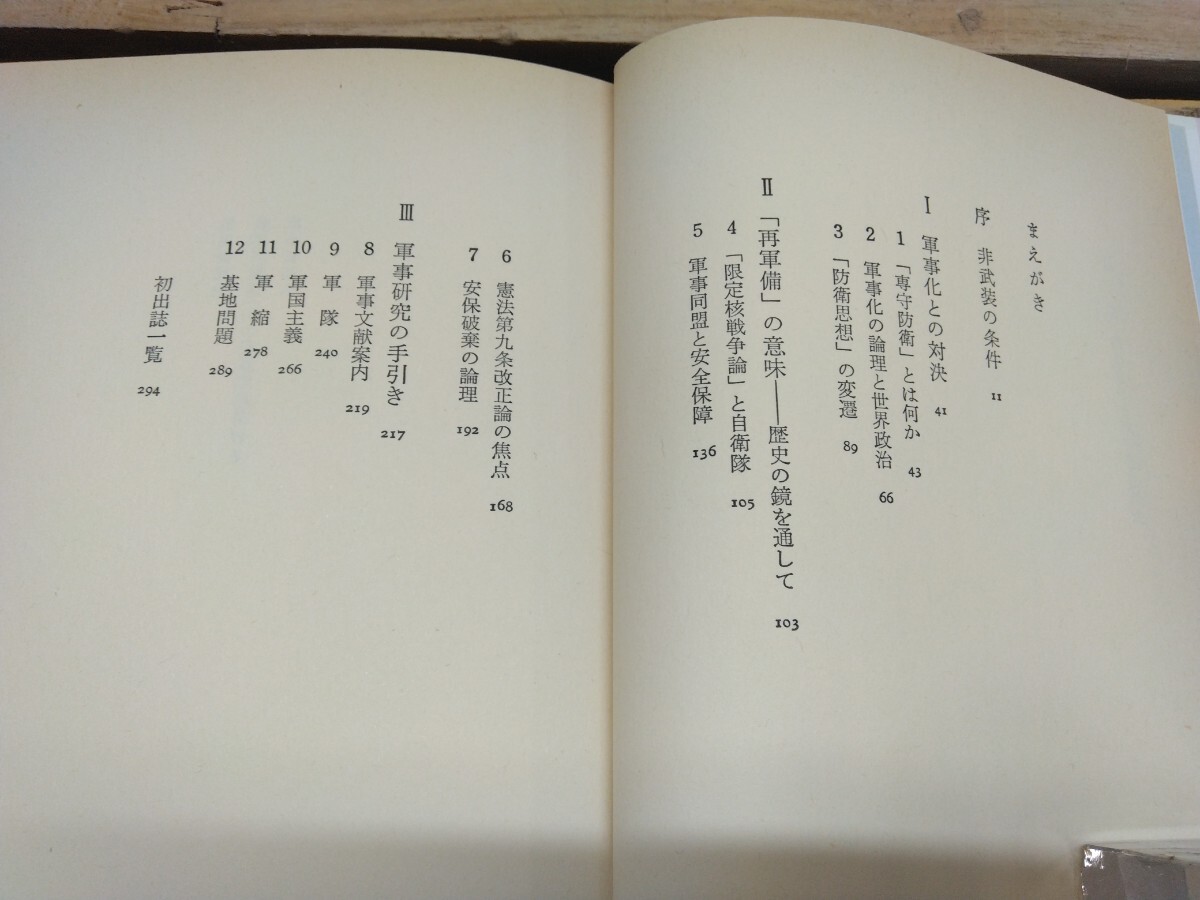 まえがき
序 非武装の条件 11
Ⅰ 軍事化との対決 41
1 「専守防衛」とは何か 43
2 軍事化の論理と世界政治 66
3 「防衛思想」の変遷 89
Ⅱ 「再軍備」の意味——歴史の鏡を通して 103
4 「限定核戦争論」と自衛隊 105
5 軍事同盟と安全保障 136
6 憲法第九条改正論の焦点 168
7 安保破棄の論理 192
Ⅲ 軍事研究の手引き 217
8 軍事文献案内 219
9 軍隊 240
10 軍国主義 266
11 軍縮 278
12 基地問題 289
初出誌一覧 294